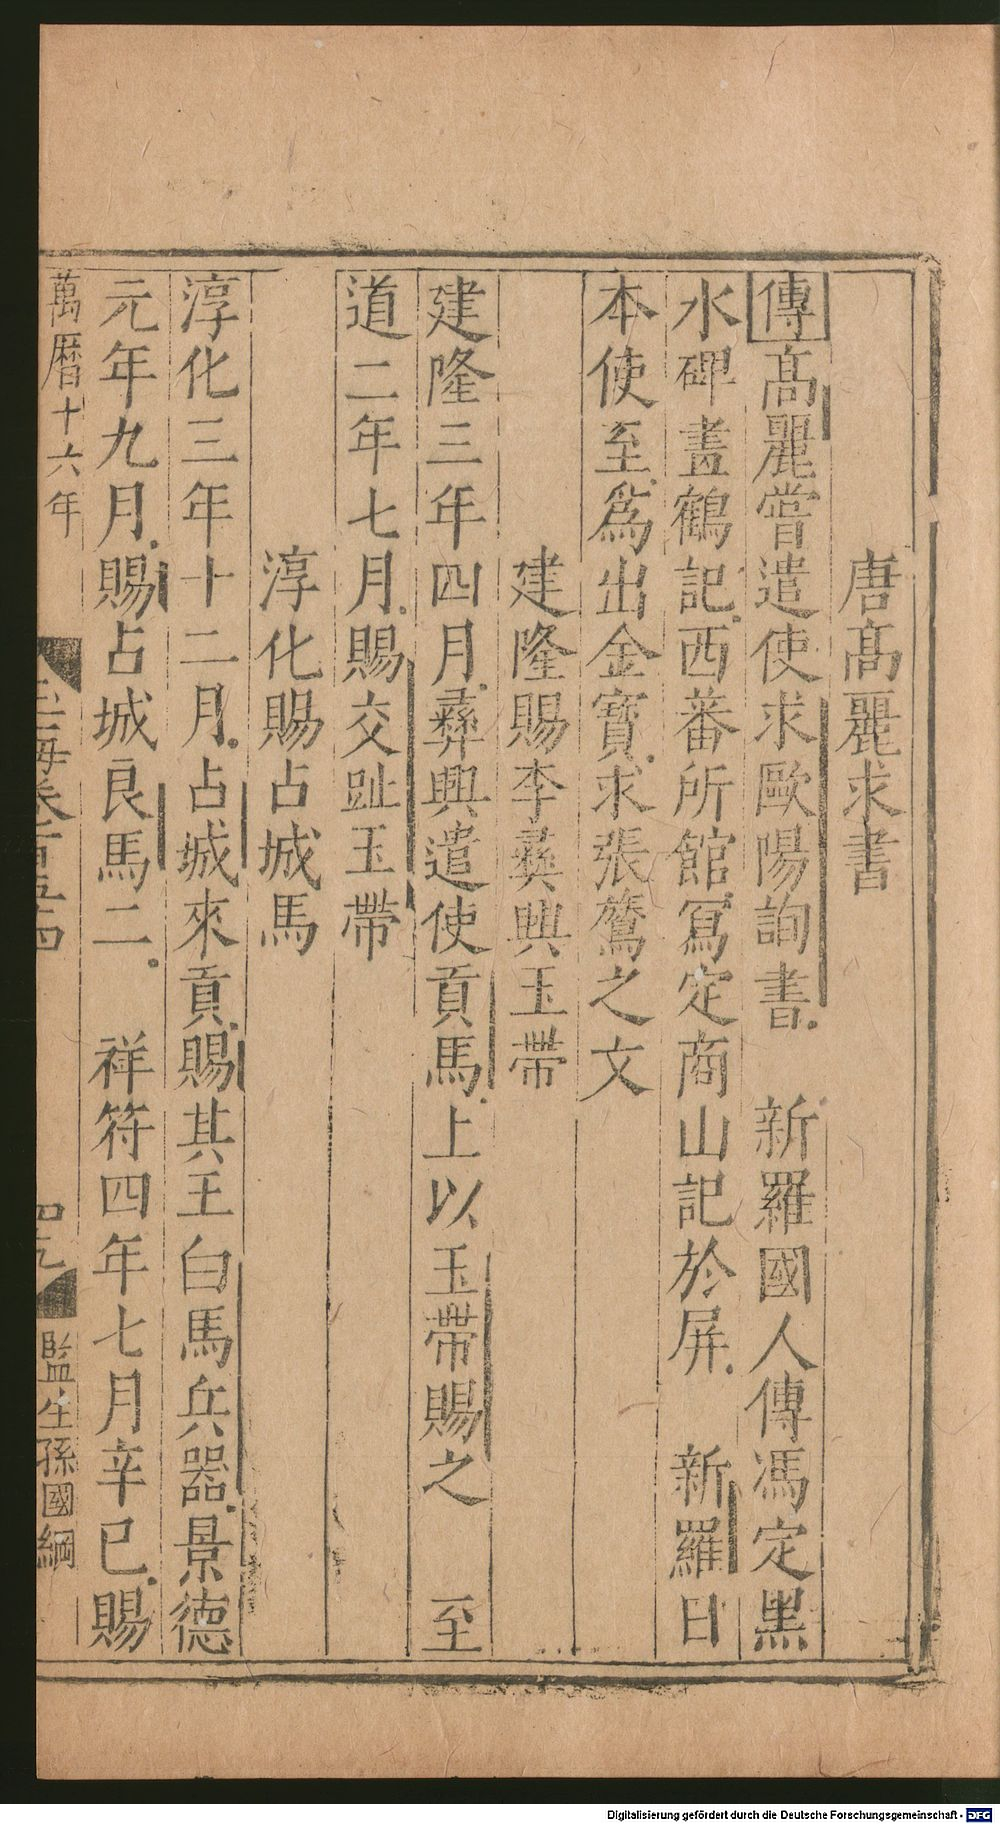 唐髙麗求書
傳髙麗嘗遣使求歐陽詢書　新羅國人傳馮定黑
水碑畫鶴記西蕃所館冩定商山記於屏　新羅日
本使至爲出金寶求張鷟之文
建隆賜李彝興玉帶
建隆三年四月彞興遣使貢馬上以玉帶賜之　至
道二年七月賜交趾玉帶
淳化賜占城馬
淳化三年十二月占城來貢賜其王白馬兵器景德
元年九月賜占城良馬二　祥符四年七月辛巳賜
萬曆十六年
玉海卷一百五十四
四九
監生孫國綱
Digitalisierung gefördert durch die Deutsche Forschungsgemeinschaft - DFG